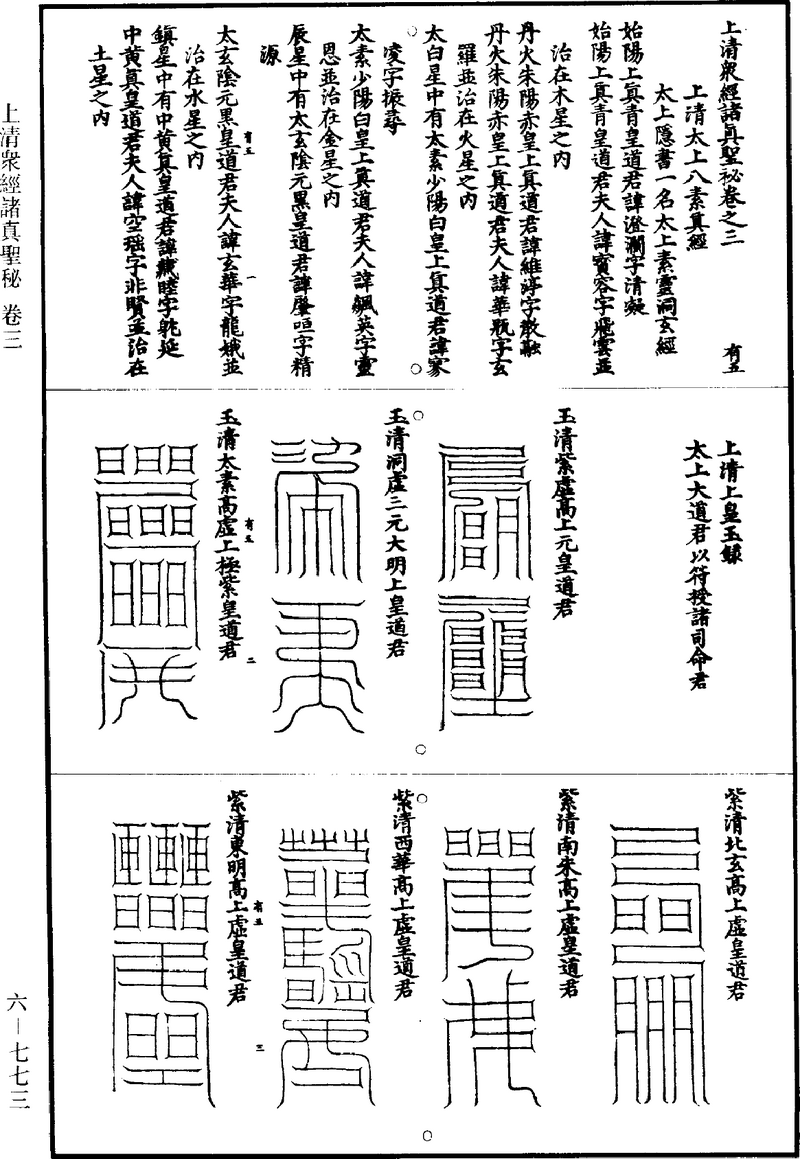 上清衆經諸真聖祕卷之三　有五
上清太上八素真經
太上隱書一名太上素靈洞玄經
始陽上真青皇道君諱澄瀾字清凝
始陽上真青皇道君夫人諱寶容字飛雲並
治在木星之内
丹火朱陽赤皇上真道君諱維渟字散融
丹火朱陽赤皇上真道君夫人諱華瓶字玄
羅並治在火星之内
太白星中有太素少陽白皇上真道君諱寥
凌字振尋
太素少陽白皇上真道君夫人諱飆英字靈
恩並治在金星之内
辰星中有太玄陰元黒皇道君諱啓咺字精
源
太玄陰元黒皇道君夫人諱玄華字龍娥並
治在水星之内
鎮星中有中黄真皇道君諱藏睦字躭延
中黄真皇道君夫人諱空瑶字非賢並治在
土星之内
有五　一
上清上皇玉籙
太上大道君以符授諸司命君
玉清紫虛高上元皇道君
玉清洞虛三元大明上皇道君
玉清太素高虛上極紫皇道君
有五　二
紫清北玄高上虛皇道君
紫清南朱高上虛皇道君
紫清西華高上虛皇道君
紫清東明高上虛皇道君
有五　三
上清衆經諸真聖秘　卷三
六—七七三